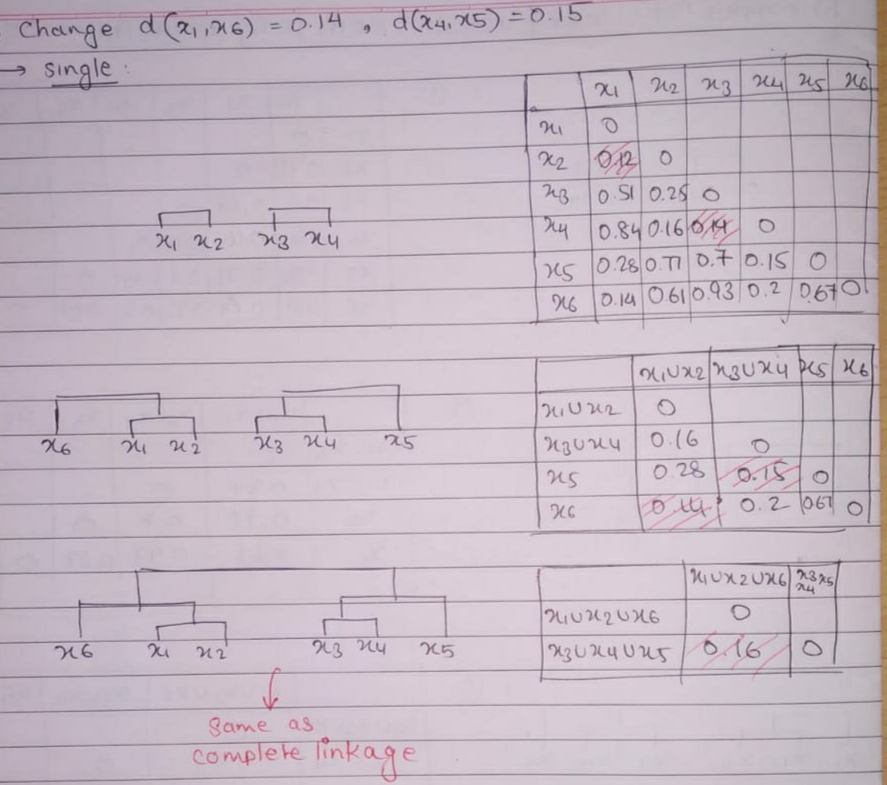 Change d(x1,x6) = 0.14 , d(x4,x5) = 0.15
→ single :
x1 x2 x3 x4 x5 x6
x1 0
x2 0.12 0
x3 0.51 0.25 0
x4 0.84 0.16 0.14 0
x5 0.28 0.77 0.7 0.15 0
x6 0.14 0.61 0.93 0.2 0.67 0
x1 x2 x3 x4
x1∪x2 x3∪x4 x5 x6
x1∪x2 0
x3∪x4 0.16 0
x5 0.28 0.15 0
x6 0.14 0.2 0.67 0
x6 x1 x2 x3 x4 x5
x1∪x2∪x6 x3 x5
x4
x1∪x2∪x6 0
x3∪x4∪x5 0.16 0
x6 x1 x2 x3 x4 x5
same as
complete linkage